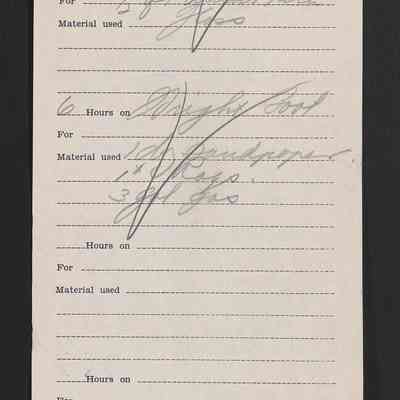 For
Material used Gas
6 Hours on Wright Tool
For
Material used 1 dz Sandpaper.
1# Rags.
3 gal Gas
Hours on
For
Material used
Hours on
For